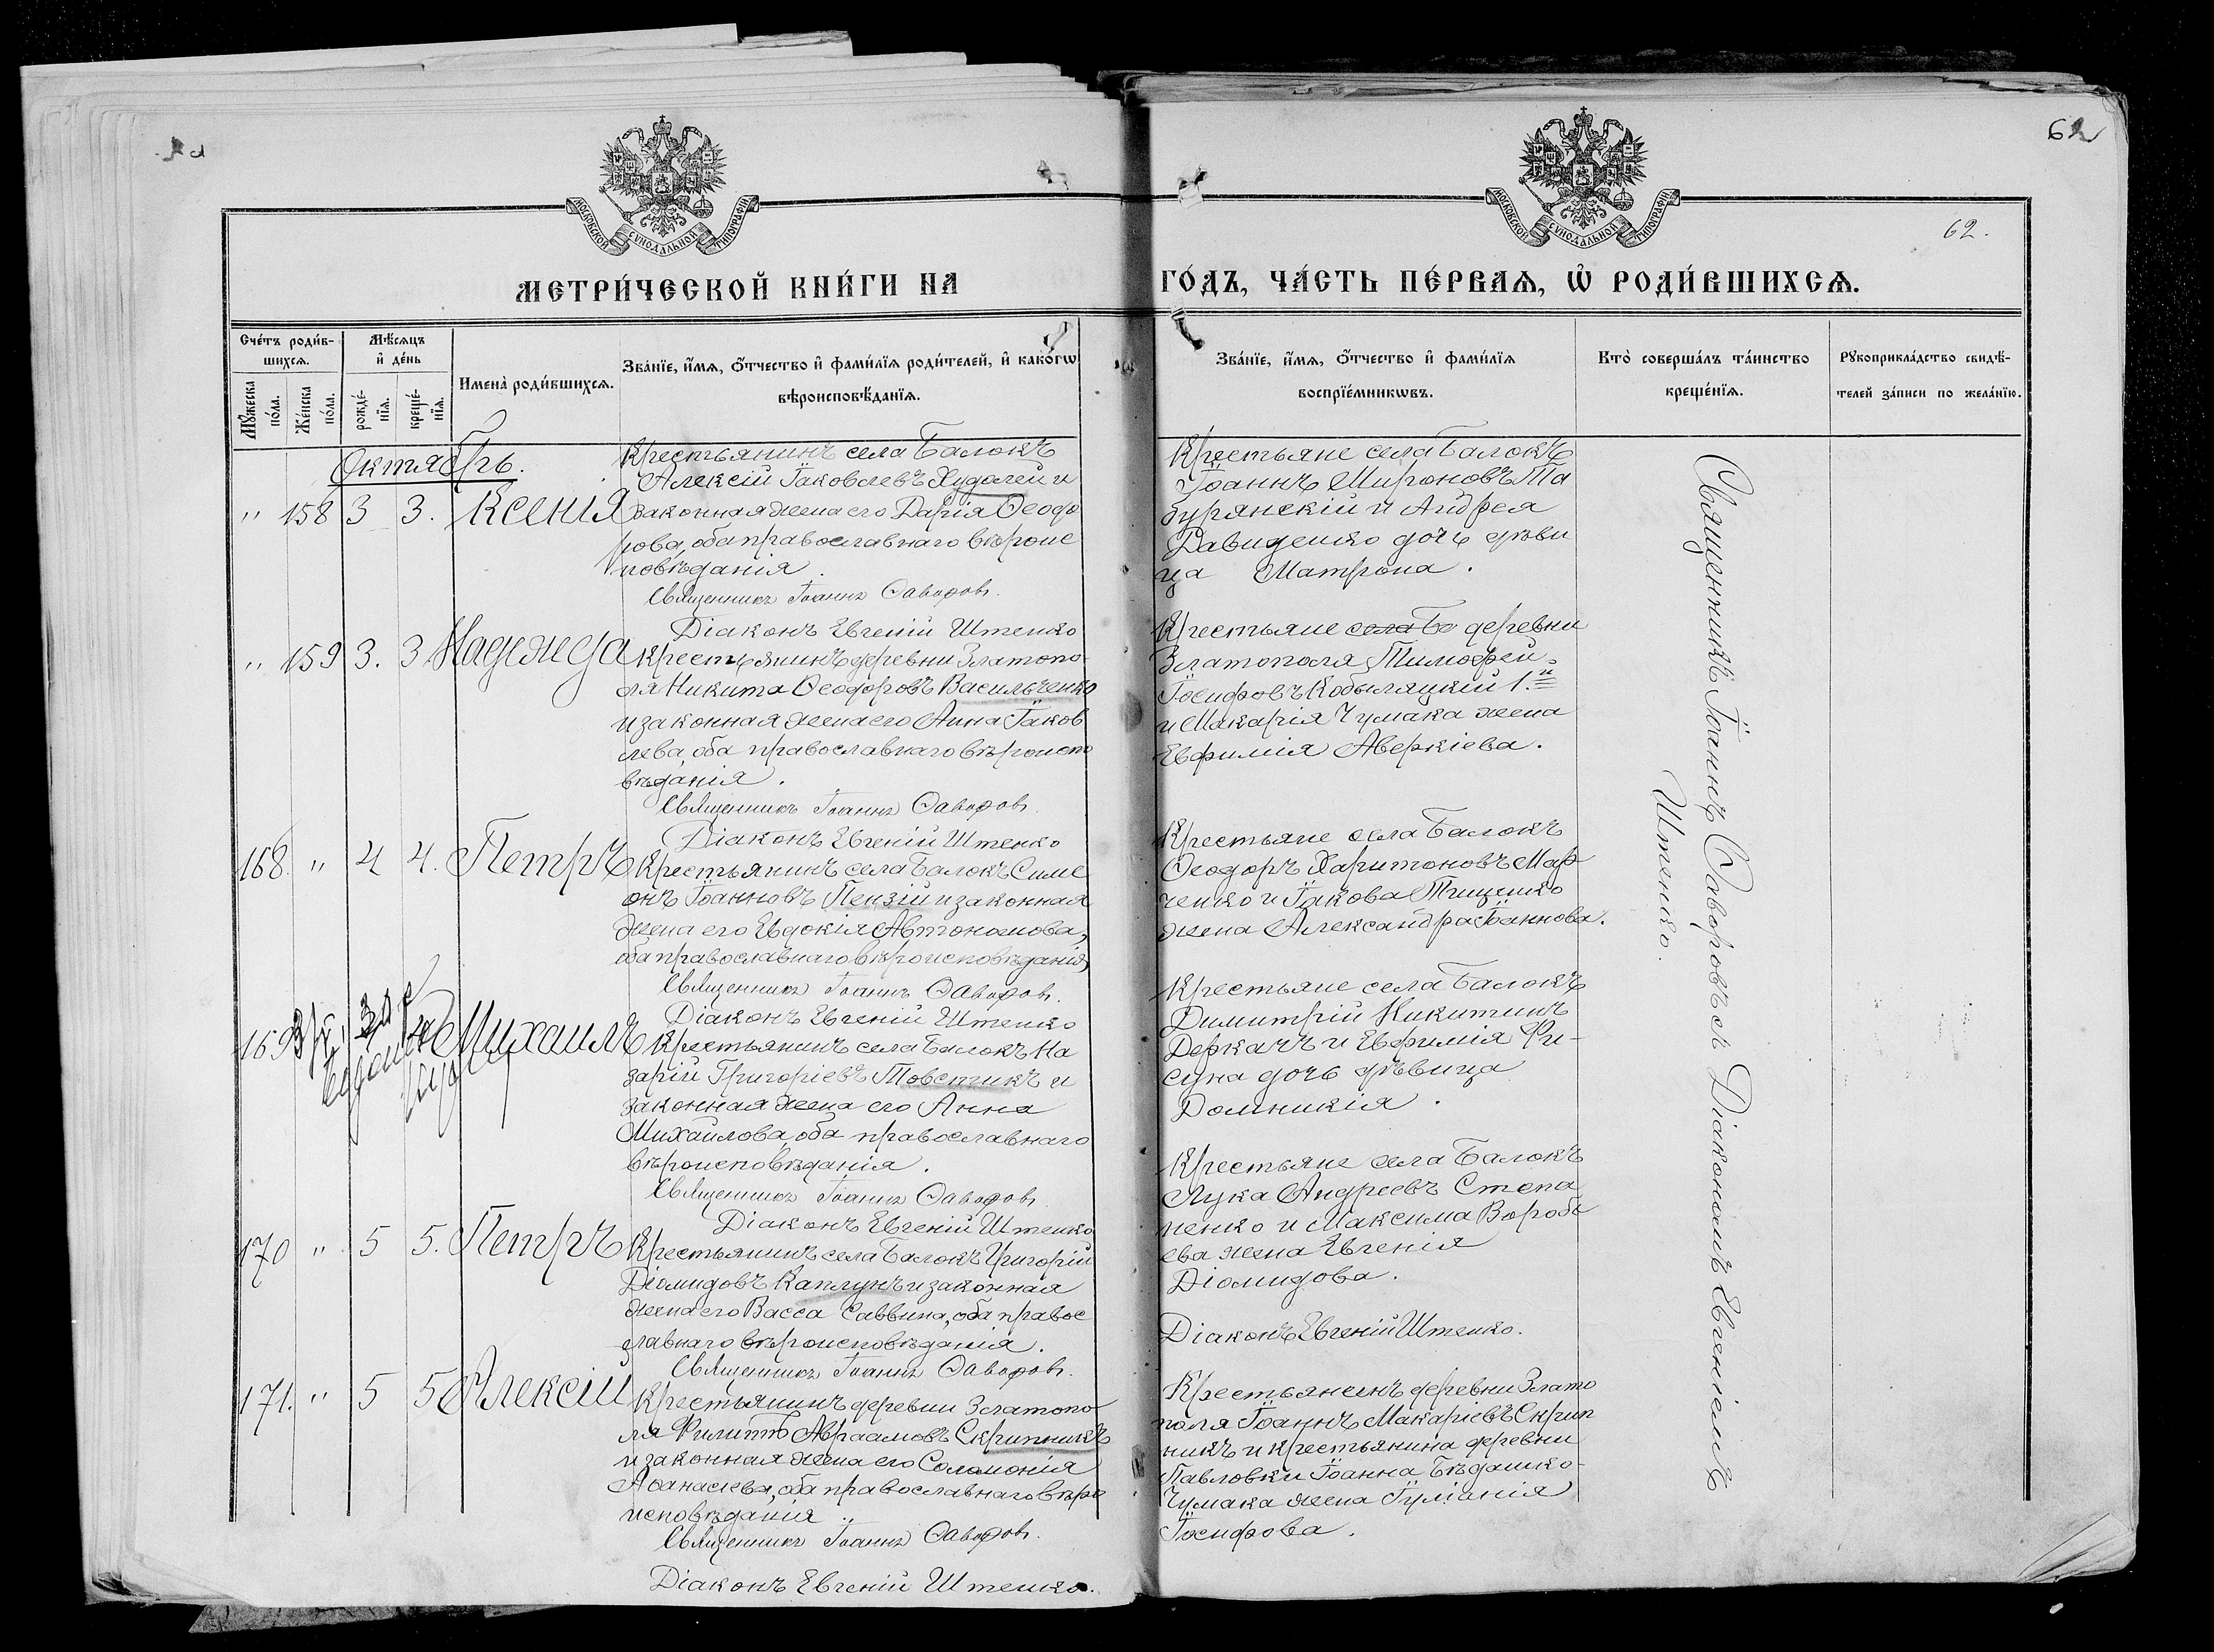 62
62.
МОСКОВСКОЙ СѴНОДАЛЬНОЙ ТИПОГРАФІИ
МОСКОВСКОЙ СѴНОДАЛЬНОЙ ТИПОГРАФІИ
МЕТРИ́ЧЕСКОЙ КНИ́ГИ НА
ГО́ДЪ, ЧА́СТЬ ПЕ́РВАѦ, Ѡ҆ РОДИ́ВШИХСѦ.
Сче́тъ роди́в-
шихсѧ.
Мꙋ́жеска по́ла.
Же́нска по́ла.
Мѣ́сѧцъ
и҆ де́нь
рожде́-
нїѧ.
креще́-
нїѧ.
Имена̀ роди́вшихсѧ.
Зва́нїе, и҆́мѧ, ѻ҆́тчество и҆ фами́лїѧ роди́телей, и҆ како́гѡ
вѣроисповѣ́данїѧ.
Зва́нїе, и҆́мѧ, ѻ҆́тчество и҆ фами́лїѧ
воспрїе́мникѡвъ.
Кто̀ соверша́лъ та́инство
креще́нїѧ.
Рꙋкоприкла́дство свидѣ́-
телей за́писи по жела́нїю.
Октябрь.
" 158 3 3. Ксенія
Крестьянинъ села Балокъ
Алексій Іаковлевъ Худолей и
законная жена его Дарія Ѳеодо
рова, оба православнаго вѣроис
повѣданія.
Священникъ Іоаннъ Ѳаворовъ.
Діаконъ Евгеній Штенко
Крестьяне села Балокъ
Іоаннъ Мироновъ Та
бурянскій и Андрея
Давиденко дочь дѣви
ца Матрона.
" 159 3. 3 Надежда
Крестьянинъ деревни Златопо-
ля Никита Ѳеодоровъ Васильченко
и законная жена его Анна Іаков
лева, оба православнаго вѣроиспо
вѣданія.
Священникъ Іоаннъ Ѳаворовъ.
Діаконъ Евгеній Штенко
Крестьяне села Ба деревни
Златополя Тимофей
Іосифовъ Кобыляцкій 1.й
и Макарія Чумака жена
Евфимія Аверкіева.
168. " 4 4. Петръ
Крестьянинъ села Балокъ Симе
онъ Іоанновъ Пензій и законная
жена его Евдокія Автономова,
оба православнаго вѣроисповѣданія
Священникъ Іоаннъ Ѳаворовъ.
Діаконъ Евгеній Штенко
Крестьяне села Балокъ
Ѳеодоръ Харитоновъ Мар
ченко и Іакова Тищенко
жена Александра Іоаннова.
169 Михаилъ
Крестьянинъ села Балокъ На
зарій Григоріевъ Товстикъ и
законная жена его Анна
Михайлова, оба православнаго
вѣроисповѣданія.
Священникъ Іоаннъ Ѳаворовъ
Діаконъ Евгеній Штенко
Крестьяне села Балокъ
Димитрій Никитинъ
Деркачъ и Евфимія Фи-
суна дочь дѣвица
Домникія.
170 " 5 5. Петръ
Крестьянинъ села Балокъ Григорій
Діомидовъ Каплунъ и законная
жена его Васса Саввина, оба правос
лавнаго вѣроисповѣданія.
Священникъ Іоаннъ Ѳаворовъ.
Крестьяне села Балокъ
Лука Андреевъ Степа
ненко и Максима Воробь
ева жена Евгенія
Діомидова.
Діаконъ Евгеній Штенко.
171. " 5 5 Алексій
Крестьянинъ деревни Златопо-
ля Филиппъ Авраамовъ Скрипникъ
и законная жена его Соломонія
Аѳанасіева, оба православнаго вѣро
исповѣданія.
Священникъ Іоаннъ Ѳаворовъ.
Діаконъ Евгеній Штенко.
Крестьянинъ деревни Злато
поля Іоаннъ Макаріевъ Скрип
никъ и крестьянина деревни
Павловки Іоанна Бѣдашко-
Чумака жена Іуліанія
Іосифова.
Священникъ Іоаннъ Ѳаворовъ съ Діакономъ Евгеніемъ
Штенко.